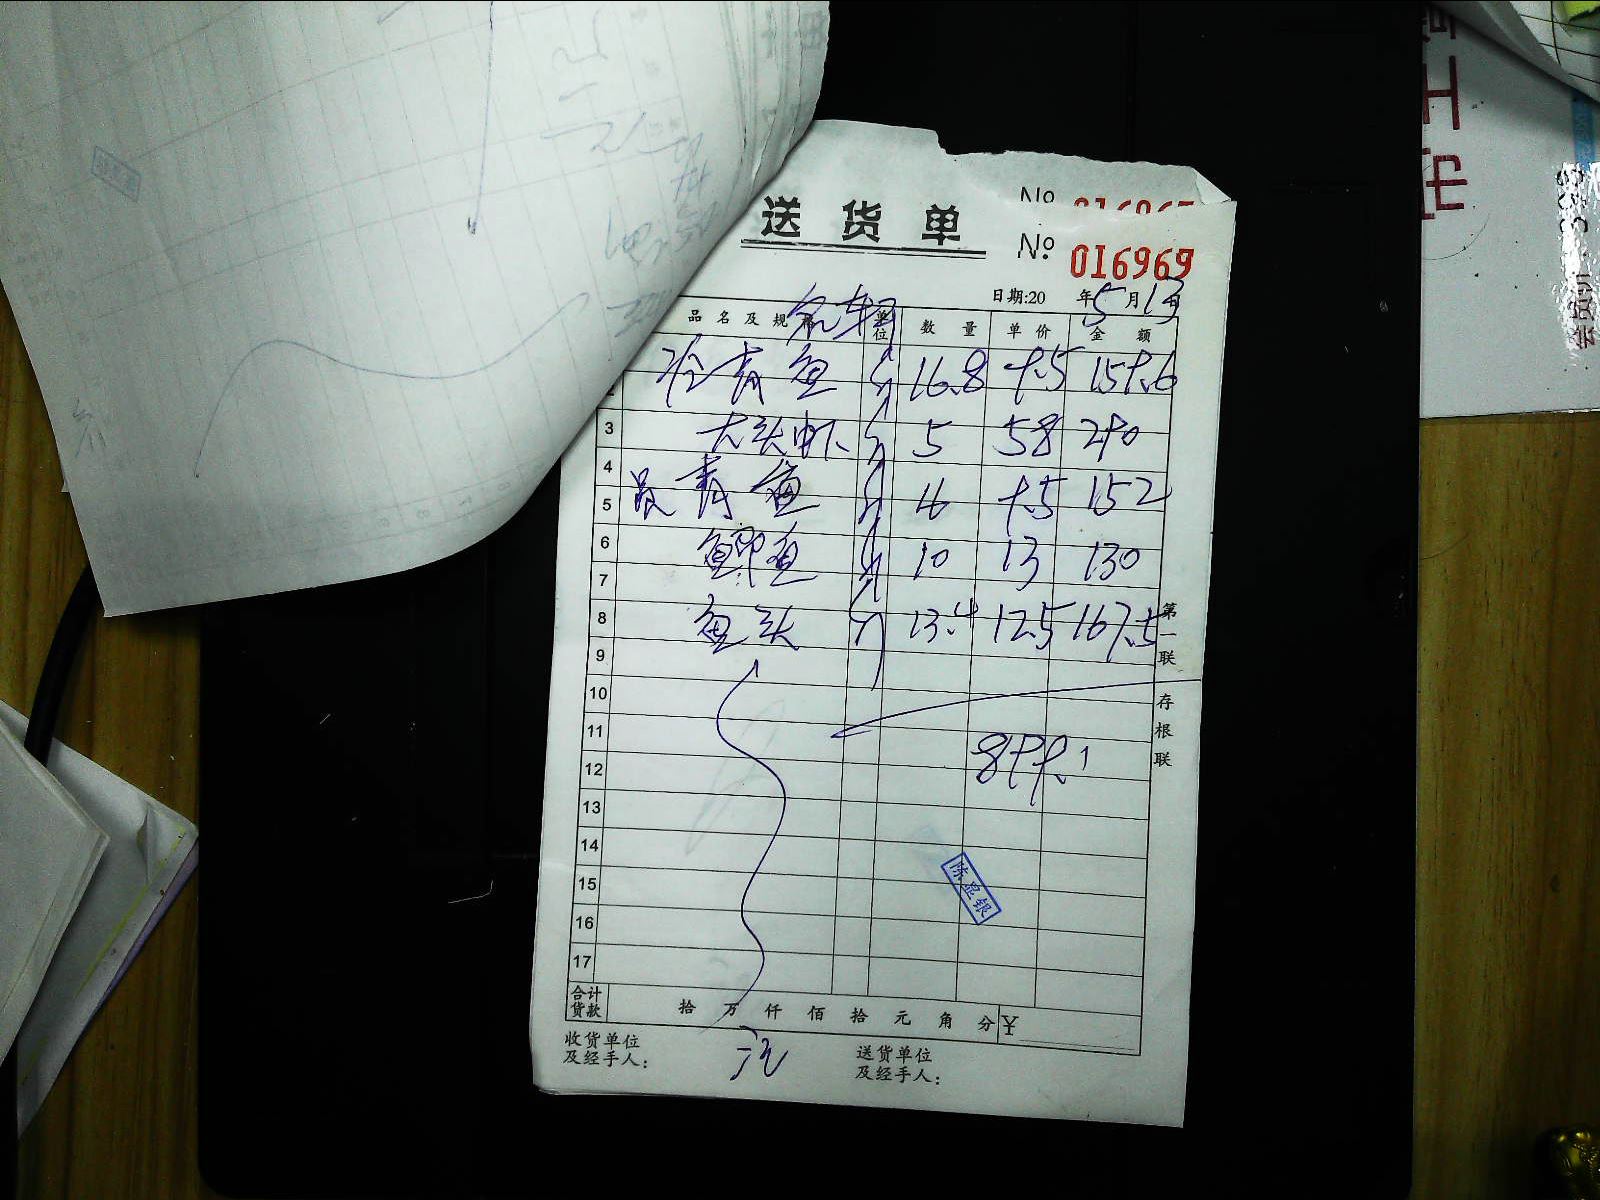 No 016967
送货单
No 016969
日期:20 年5月13日
品名及规格 单位 数量 单价 金额
青鱼 斤 16.8 9.5 159.6
3 大头虾 斤 5 58 290
4
5 青鱼 斤 16 9.5 152
6 鲫鱼 斤 10 13 130
7
8 鱼头 斤 13.4 12.5 167.5
9
10
11
12 899.1
13
14
15 陈显银
16
17
合计货款 拾 万 仟 佰 拾 元 角 分 ¥
收货单位及经手人:
送货单位及经手人:
第一联 存根联